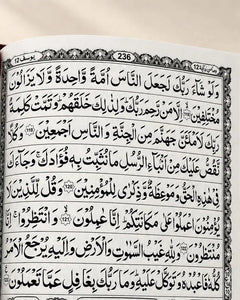 يوسف ١٢ 236 ومامن دآبة ١٢
وَلَوْ شَآءَ رَبُّكَ لَجَعَلَ النَّاسَ اُمَّةً وَّاحِدَةً وَّلَا يَزَالُوْنَ
مُخْتَلِفِيْنَ ﴿118﴾ اِلَّا مَنْ رَّحِمَ رَبُّكَ وَلِذٰلِكَ خَلَقَهُمْ وَتَمَّتْ كَلِمَةُ
رَبِّكَ لَاَمْلَئَنَّ جَهَنَّمَ مِنَ الْجِنَّةِ وَالنَّاسِ اَجْمَعِيْنَ ﴿119﴾ وَكُلًّا
نَّقُصُّ عَلَيْكَ مِنْ اَنْۢبَآءِ الرُّسُلِ مَا نُثَبِّتُ بِهٖ فُؤَادَكَ وَجَآءَكَ
فِيْ هٰذِهِ الْحَقُّ وَمَوْعِظَةٌ وَّذِكْرٰى لِلْمُؤْمِنِيْنَ ﴿120﴾ وَقُلْ لِّلَّذِيْنَ لَا
يُؤْمِنُوْنَ اعْمَلُوْا عَلٰى مَكَانَتِكُمْ اِنَّا عٰمِلُوْنَ ﴿121﴾ وَانْتَظِرُوْا اِنَّا
مُنْتَظِرُوْنَ ﴿122﴾ وَلِلّٰهِ غَيْبُ السَّمٰوٰتِ وَالْاَرْضِ وَاِلَيْهِ يُرْجَعُ الْاَمْرُ
كُلُّهٗ فَاعْبُدْهُ وَتَوَكَّلْ عَلَيْهِ وَمَا رَبُّكَ بِغَافِلٍ عَمَّا تَعْمَلُوْنَ